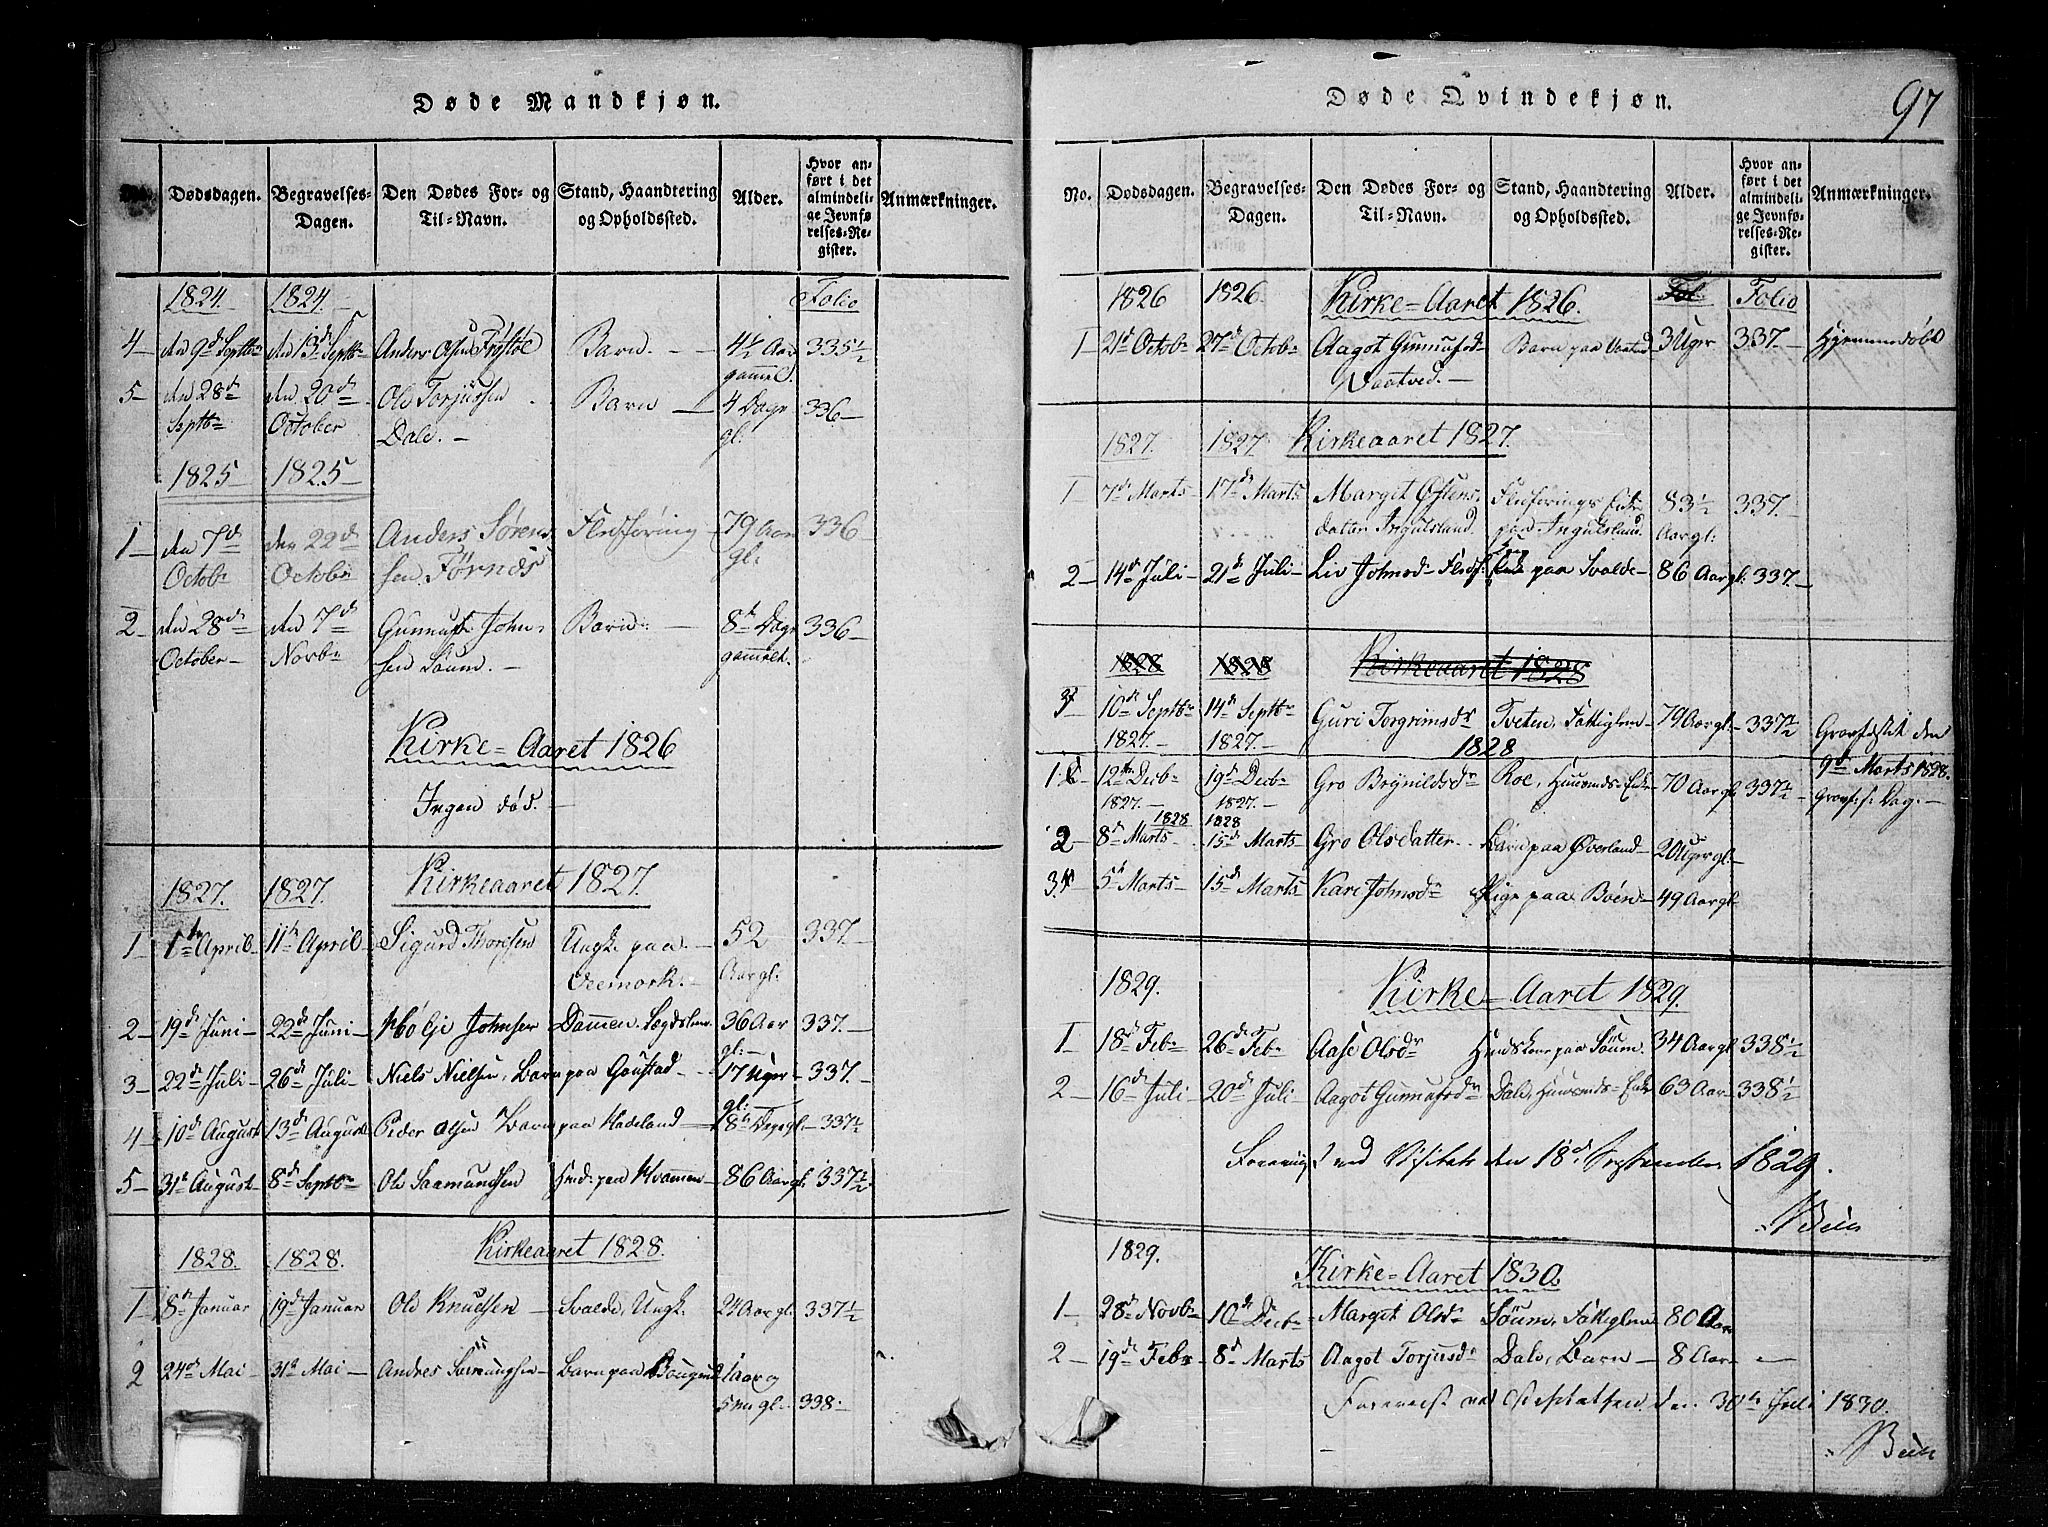 Døde Mandkjøn.
Dødsdagen. Begravelses-Dagen. Den Dødes For- og Til-Navn. Stand, Haandtering og Opholdssted. Alder. Hvor anført i det almindelige Jevnførelses-Register. Anmærkninger.
1824. 1824. Folio
4 den 9d Septbr den 13d Septbr Anders Olsen Barn. 4½ Aar gammel. 335½
5 den 28d Septbr den 20d October Ole Torjussen Dale. Barn 4 Dage gl: 336
1825 1825
1 den 7d Octobr den 22d Octobr Anders Sørensen Førnes Fledføring 79 Aar gl: 336
2 den 28d October den 7d Novbr Gunnuf Johnsen Saum. Barn 8te Dage gammelt. 336
Kirke-Aaret 1826
Ingen død.
1827. 1827. Kirkeaaret 1827.
1 1te April 11te April Sigurd Thoresen Ungk. paa Veemork. 52 Aar gl: 337
2 19d Juni 22d Juni Johnsen 36 Aar gl: 337.
3 22d Juli 26d Juli Niels Nielsen, Barn paa Goustad 17 Uger gl: 337.
4 10d August 13d August Peder Olsen Barn paa Hadeland 8te Dage gl: 337½
5 31te August 8d Septbr Ole Saamundsen paa Kvammen 86 Aar gl: 337½
1828. 1828. Kirkeaaret 1828.
1 8d Januar 19d Januar Ole Knudsen Svalde, Ungk. 24 Aar gl: 337½
2 24d Mai 31te Mai Andres Barn paa 1 aar og 5 m gl: 338.
97
Døde Qvindekjøn.
No. Dødsdagen. Begravelses-Dagen. Den Dødes For- og Til-Navn. Stand, Haandtering og Opholdssted. Alder. Hvor anført i det almindelige Jevnførelses-Register. Anmærkninger.
1826 1826. Kirke-Aaret 1826. Fol: Folio
1 21d Octobr 27d Octobr Aagot Gunnufsd Vaatved. Barn paa 3 Uger 337. Hjemmedøbt
1827. 1827. Kirkeaaret 1827.
1 7d Marts 17d Marts Margit Østensdatter Ingulsland. Fledførings Enke paa Ingulsland. 83½ Aar gl: 337.
2 14d Juli 21d Juli Liv Johnsd paa Svalde 86 Aar gl: 337.
1828 1828 Kirkeaaret 1828
3 10d Septbr 1827. 14d Septbr 1827. Guri Torgrimsdr Tveten, Fattiglem 79 Aar gl: 337½ Gravfæstet den 9d Marts 1828.
1828
1 12te Decbr 1827. 19d Decbr 1827. Gro Brynildsdr Roe, Huusmds-Enke 70 Aar gl: 337½
2 8d Marts 1828 15d Marts 1828 Gro Olsdatter Barn paa Øverland 20 Uger gl:
3 5te Marts 15d Marts Kari Johnsdr Pige paa Bøen 49 Aar gl:
1829. Kirke-Aaret 1829.
1 18d Febr 26d Febr Aase Olsdr 34 Aar gl: 338½
2 16d Juli 20d Juli Aagot Gunnufsdr Dale, Huusmds-Enke 63 Aar 338½
Foreviist ved Visitats den 18d September 1829.
1829. Kirke-Aaret 1830.
1 28d Novbr 10de Decbr Margit Olsdr Fattiglem 80 Aar
2 19d Febr 8d Marts Aagot Torjusdr Dale, Barn 8 Aar
Foreviist ved den 30te Juli 1830.